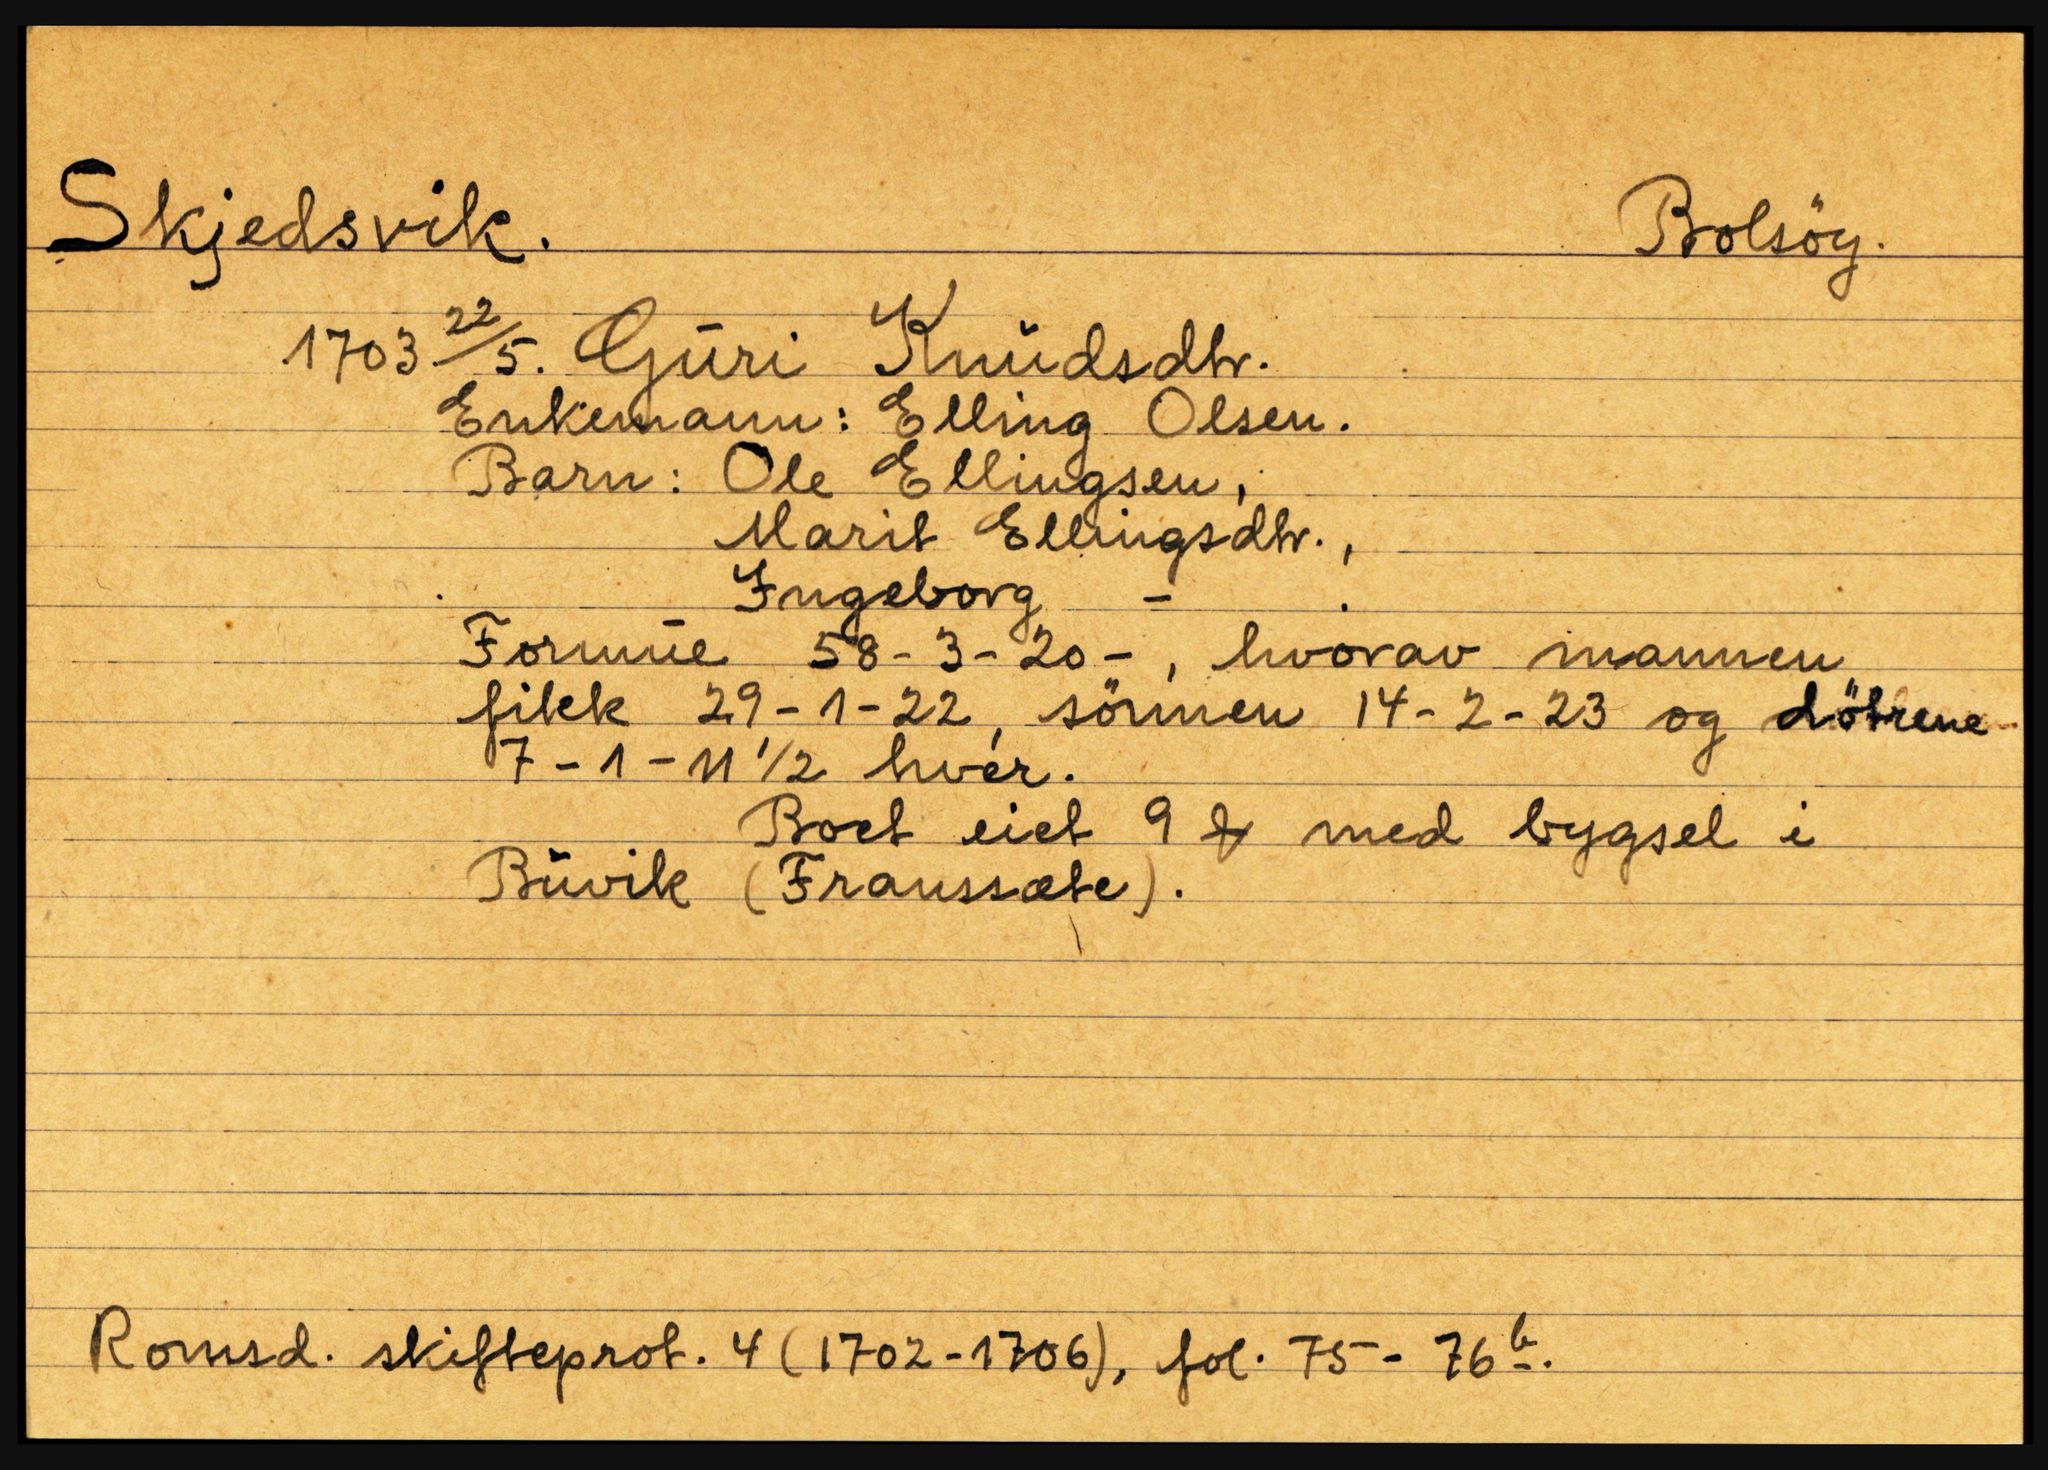 Skjedsvik. Bolsöy.
1703 22/5. Gūri Knūdsdtr.
Enkemann: Elling Olsen.
Barn: Ole Ellingsen,
Marit Ellingsdtr.,
Ingeborg - .
Formūe 58-3-20-, hvorav mannen
fikk 29-1-22, sönnen 14-2-23 og dötrene
7-1-11 1/2 hver.
Boet eiet 9 med bygsel i
Būvik (Franssæte).
Romsd. skifteprot. 4 (1702-1706), fol. 75-76b.